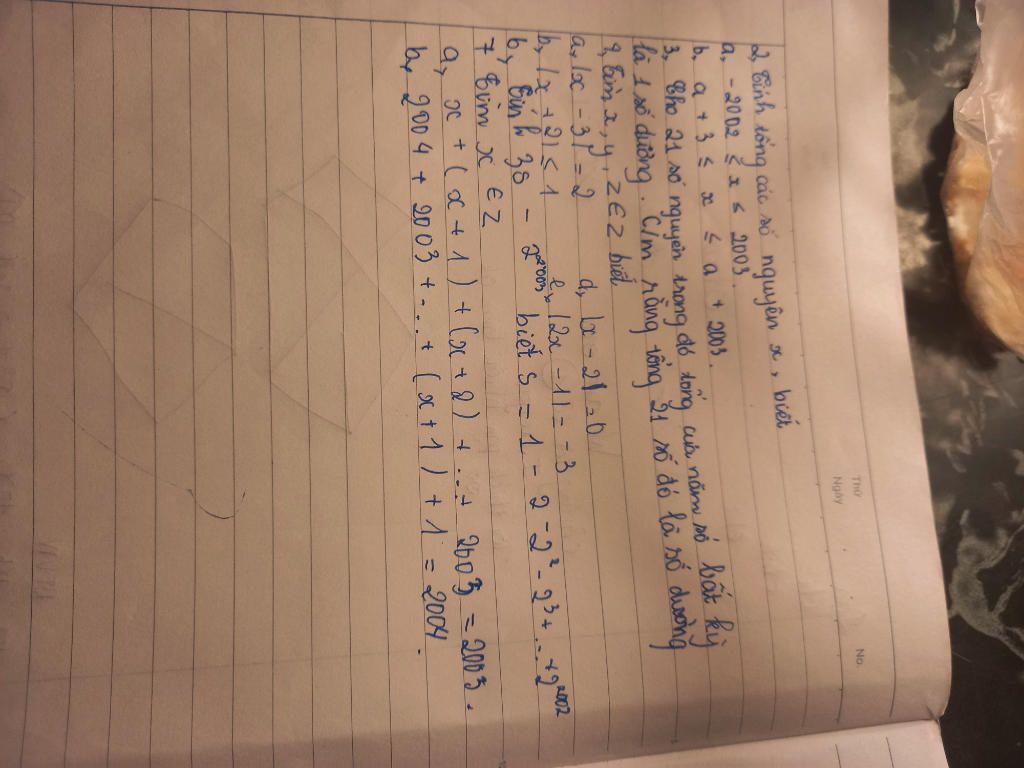 Thứ
Ngày
No.
2, Tính tổng các số nguyên x, biết
a, -2002 ≤ x ≤ 2003.
b, a + 3 ≤ x ≤ a + 2003.
3, Cho 21 số nguyên trong đó tổng của năm số bất kỳ
là 1 số dương. C/m rằng tổng 21 số đó là số dương
4, Tìm x, y, z ∈ Z biết
a, |x - 3| = 2 d, |x - 2| = 0
b, |x + 2| ≤ 1 e, |2x - 1| = -3
6, Tính 3S - 2²⁰⁰³ biết S = 1 - 2 - 2² - 2³ + ... + 2²⁰⁰²
7 Tìm x ∈ Z
a, x + (x + 1) + (x + 2) + ... + 2003 = 2003.
b, 2004 + 2003 + ... + (x + 1) + 1 = 2004.